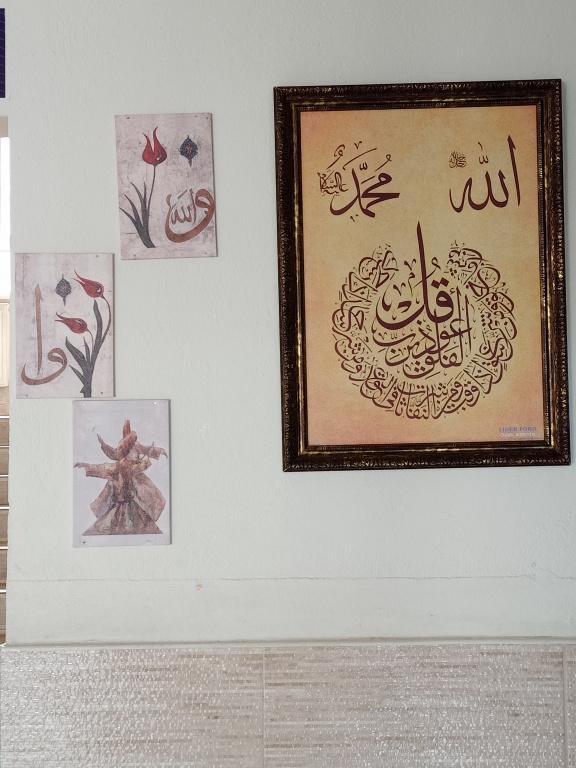 والله
وا
الله جل جلاله
محمد عليه السلام
قل
أعوذ برب
الفلق
من شر ما خلق ومن شر غاسق إذا وقب ومن شر النفاثات في العقد ومن شر حاسد إذا حسد